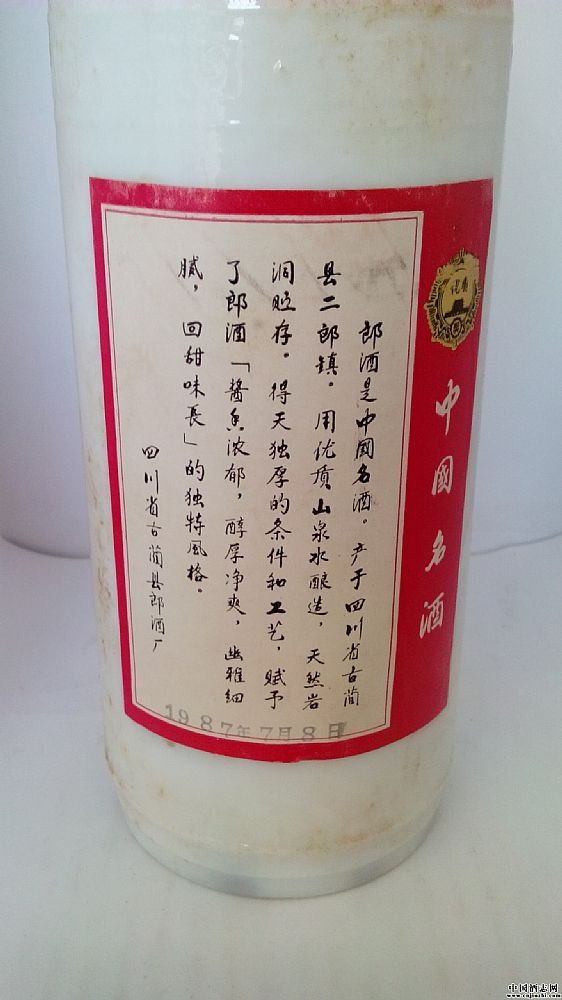 郎酒是中國名酒。产于四川省古蔺
县二郎镇。用优质山泉水酿造，天然岩
洞贮存。得天独厚的条件和工艺，赋予
了郎酒「醬香浓郁，醇厚净爽，幽雅细
腻，回甜味長」的独特风格。
四川省古蔺县郎酒厂
1987年7月8日
优质
中國名酒
中国酒志网
www.cnjiuzhi.com